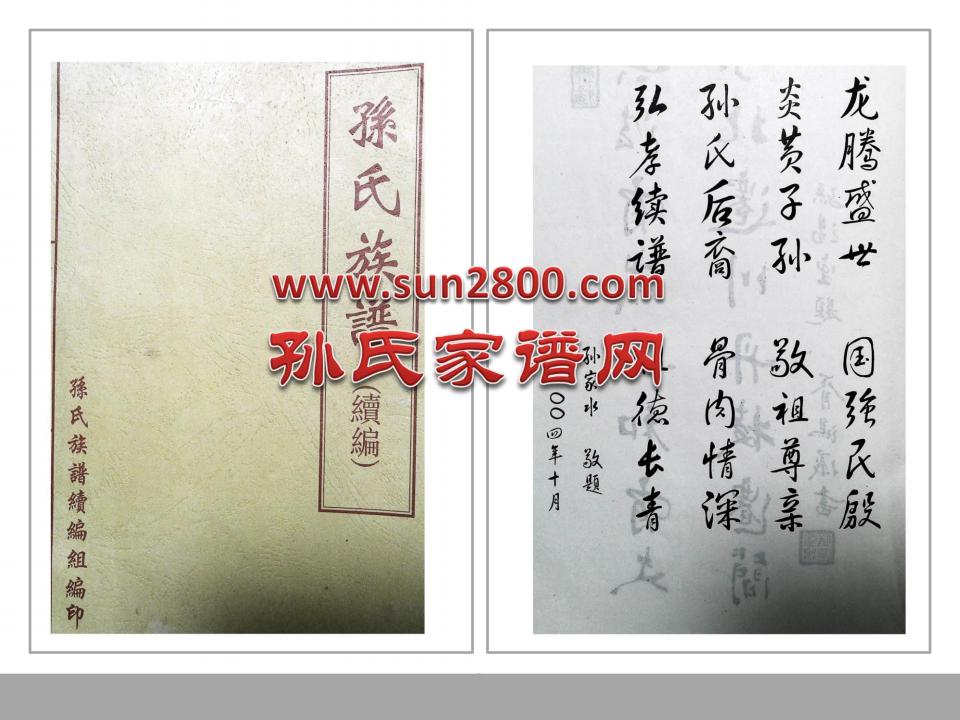 孫氏族譜
(續編)
孫氏族譜續編組編印
www.sun2800.com
孙氏家谱网
龙腾盛世 国强民殷
炎黄子孙 敬祖尊亲
孙氏后裔 骨肉情深
弘孝续谱 德长青
孙家水 敬题
〇〇四年十月